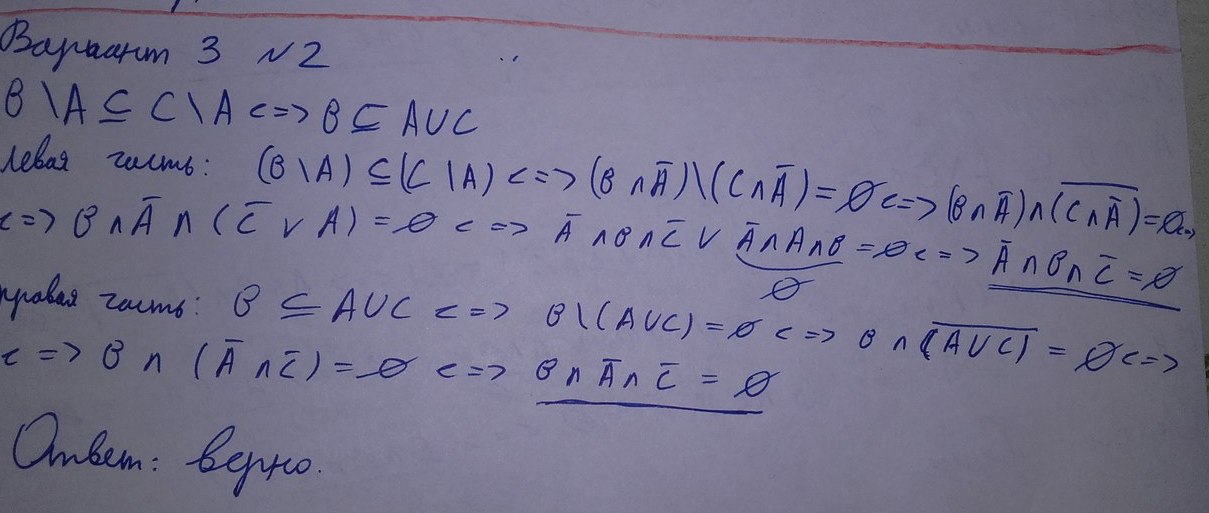 Вариант 3 №2
B \ A ⊆ C \ A <=> B ⊆ A ∪ C
левая часть: (B \ A) ⊆ (C \ A) <=> (B ∩ A̅) \ (C ∩ A̅) = ∅ <=> (B ∩ A̅) ∩ (C̅ ̅∩̅ ̅A̅̅) = ∅ <=>
<=> B ∩ A̅ ∩ (C̅ ∪ A) = ∅ <=> A̅ ∩ B ∩ C̅ ∪ A̅ ∩ A ∩ B = ∅ <=> A̅ ∩ B ∩ C̅ = ∅
∅
правая часть: B ⊆ A ∪ C <=> B \ (A ∪ C) = ∅ <=> B ∩ (A̅ ̅∪̅ ̅C̅) = ∅ <=>
<=> B ∩ (A̅ ∩ C̅) = ∅ <=> B ∩ A̅ ∩ C̅ = ∅
Ответ: верно.